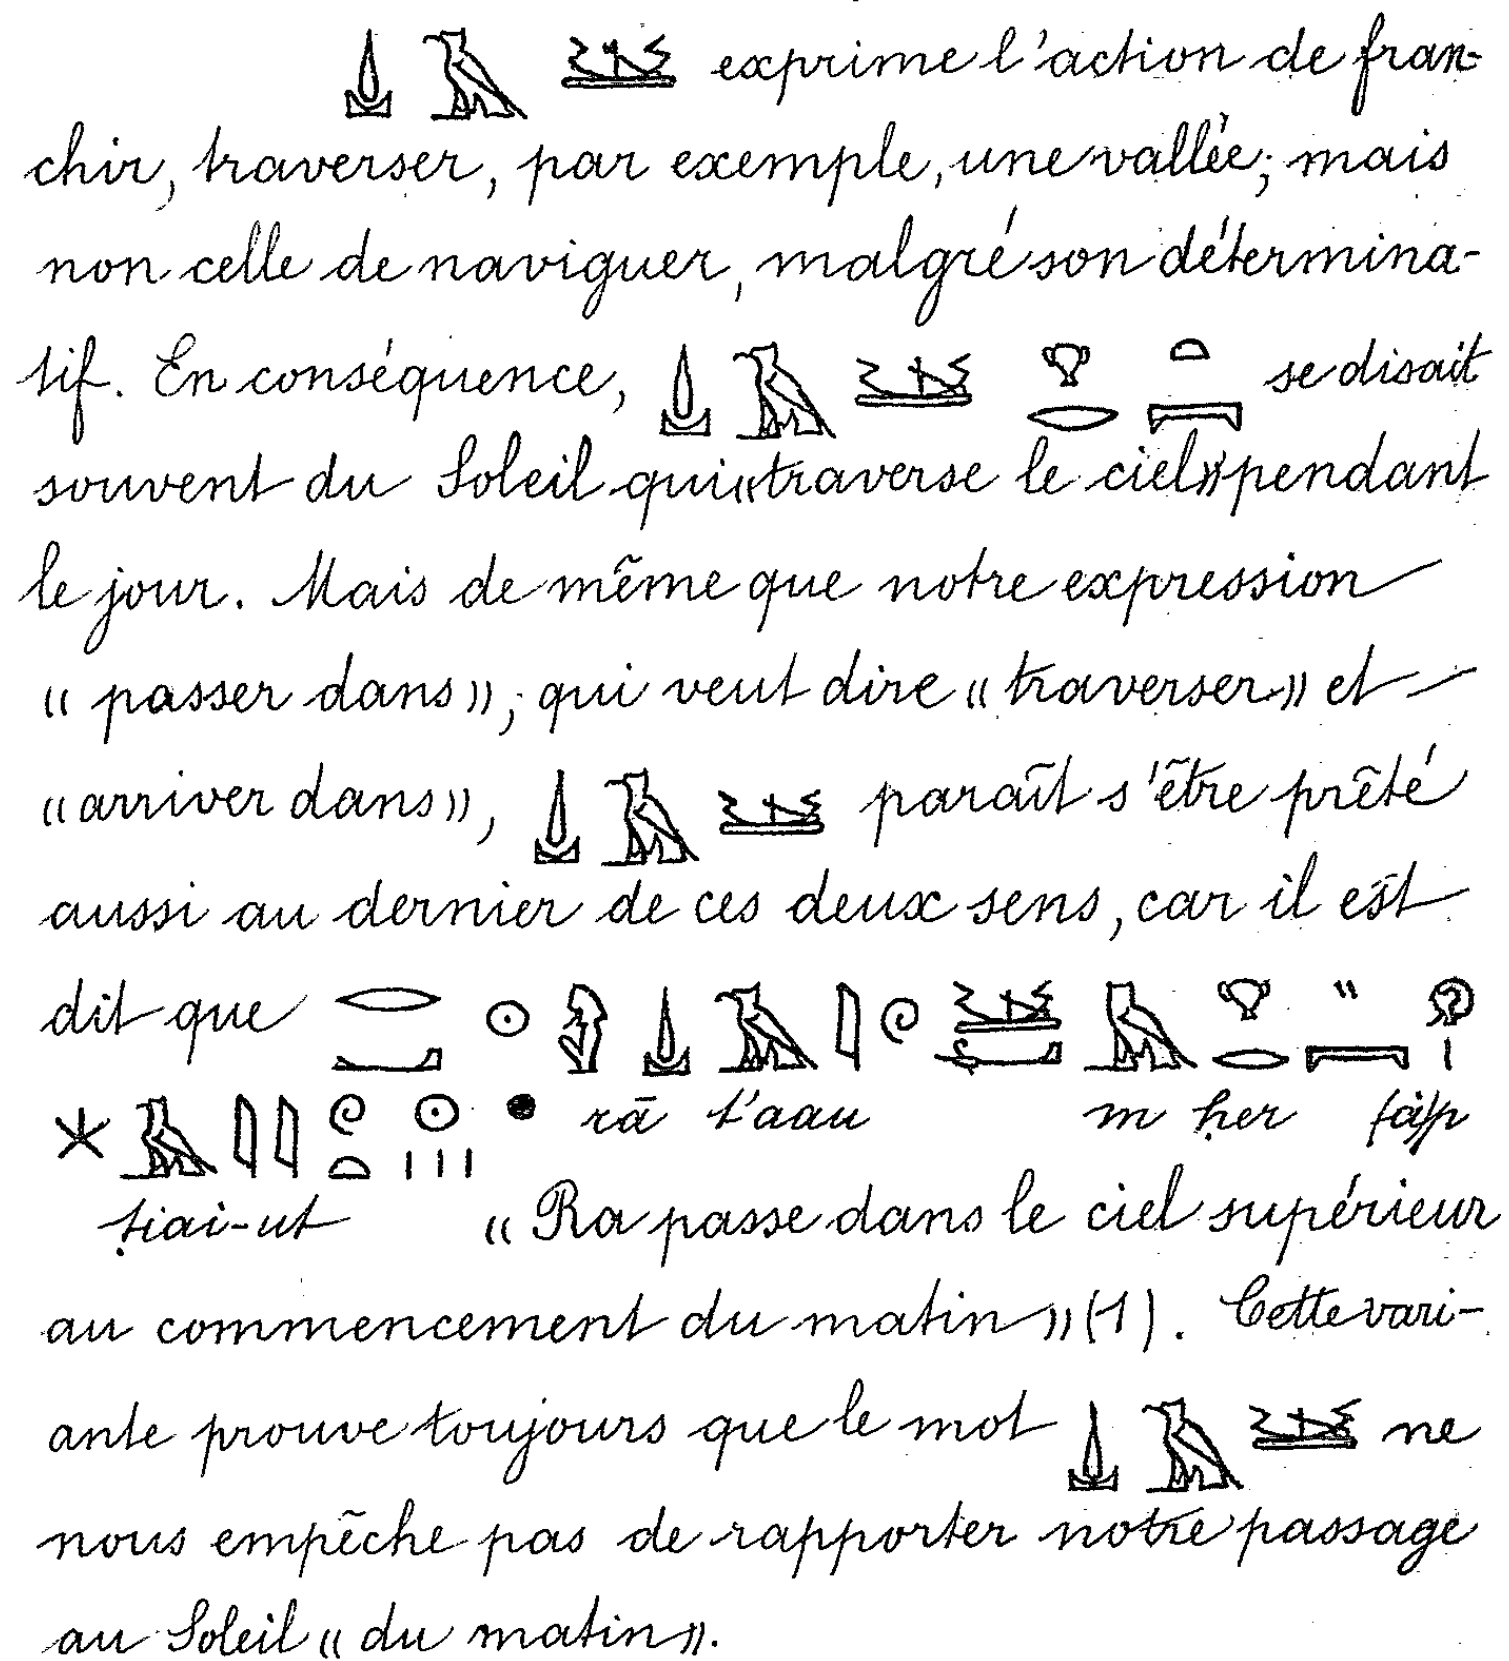 𓍑𓄿𓊛 exprime l'action de fran-
chir, traverser, par exemple, une vallée; mais
non celle de naviguer, malgré son détermina-
tif. En conséquence, 𓍑𓄿𓊛𓁷𓂋𓏏𓇯 se disait
souvent du Soleil qui «traverse le ciel» pendant
le jour. Mais de même que notre expression
« passer dans», qui veut dire « traverser» et
«arriver dans», 𓍑𓄿𓊛 paraît s'être prêté
aussi au dernier de ces deux sens, car il est
dit que 𓂋𓂝𓇳 𓍑𓄿𓇋𓏲𓊛 𓅓𓁷𓂋𓇯𓁶𓏤
𓇼𓄿𓇋𓇋𓏲𓏏𓇳𓏥 rā t'aau m her tāp
tiai-ut « Ra passe dans le ciel supérieur
au commencement du matin» (1). Cette vari-
ante prouve toujours que le mot 𓍑𓄿𓊛 ne
nous empêche pas de rapporter notre passage
au Soleil « du matin».